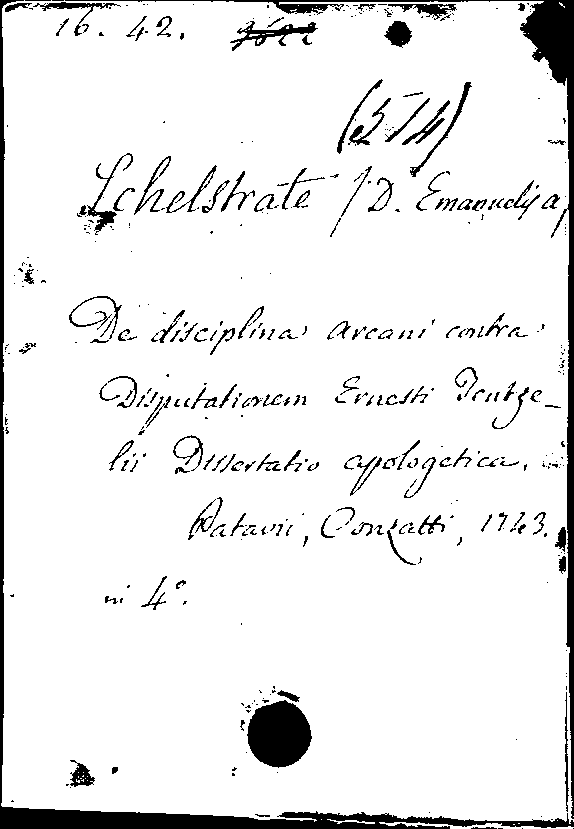 16. 42. 3622
(514)
Schelstrate / D. Emanuelis a,
De disciplina arcani contra
Disputationem Ernesti Tentze-
lii Dissertatio apologetica.
Patavii, Conzatti, 1743.
in 4°.